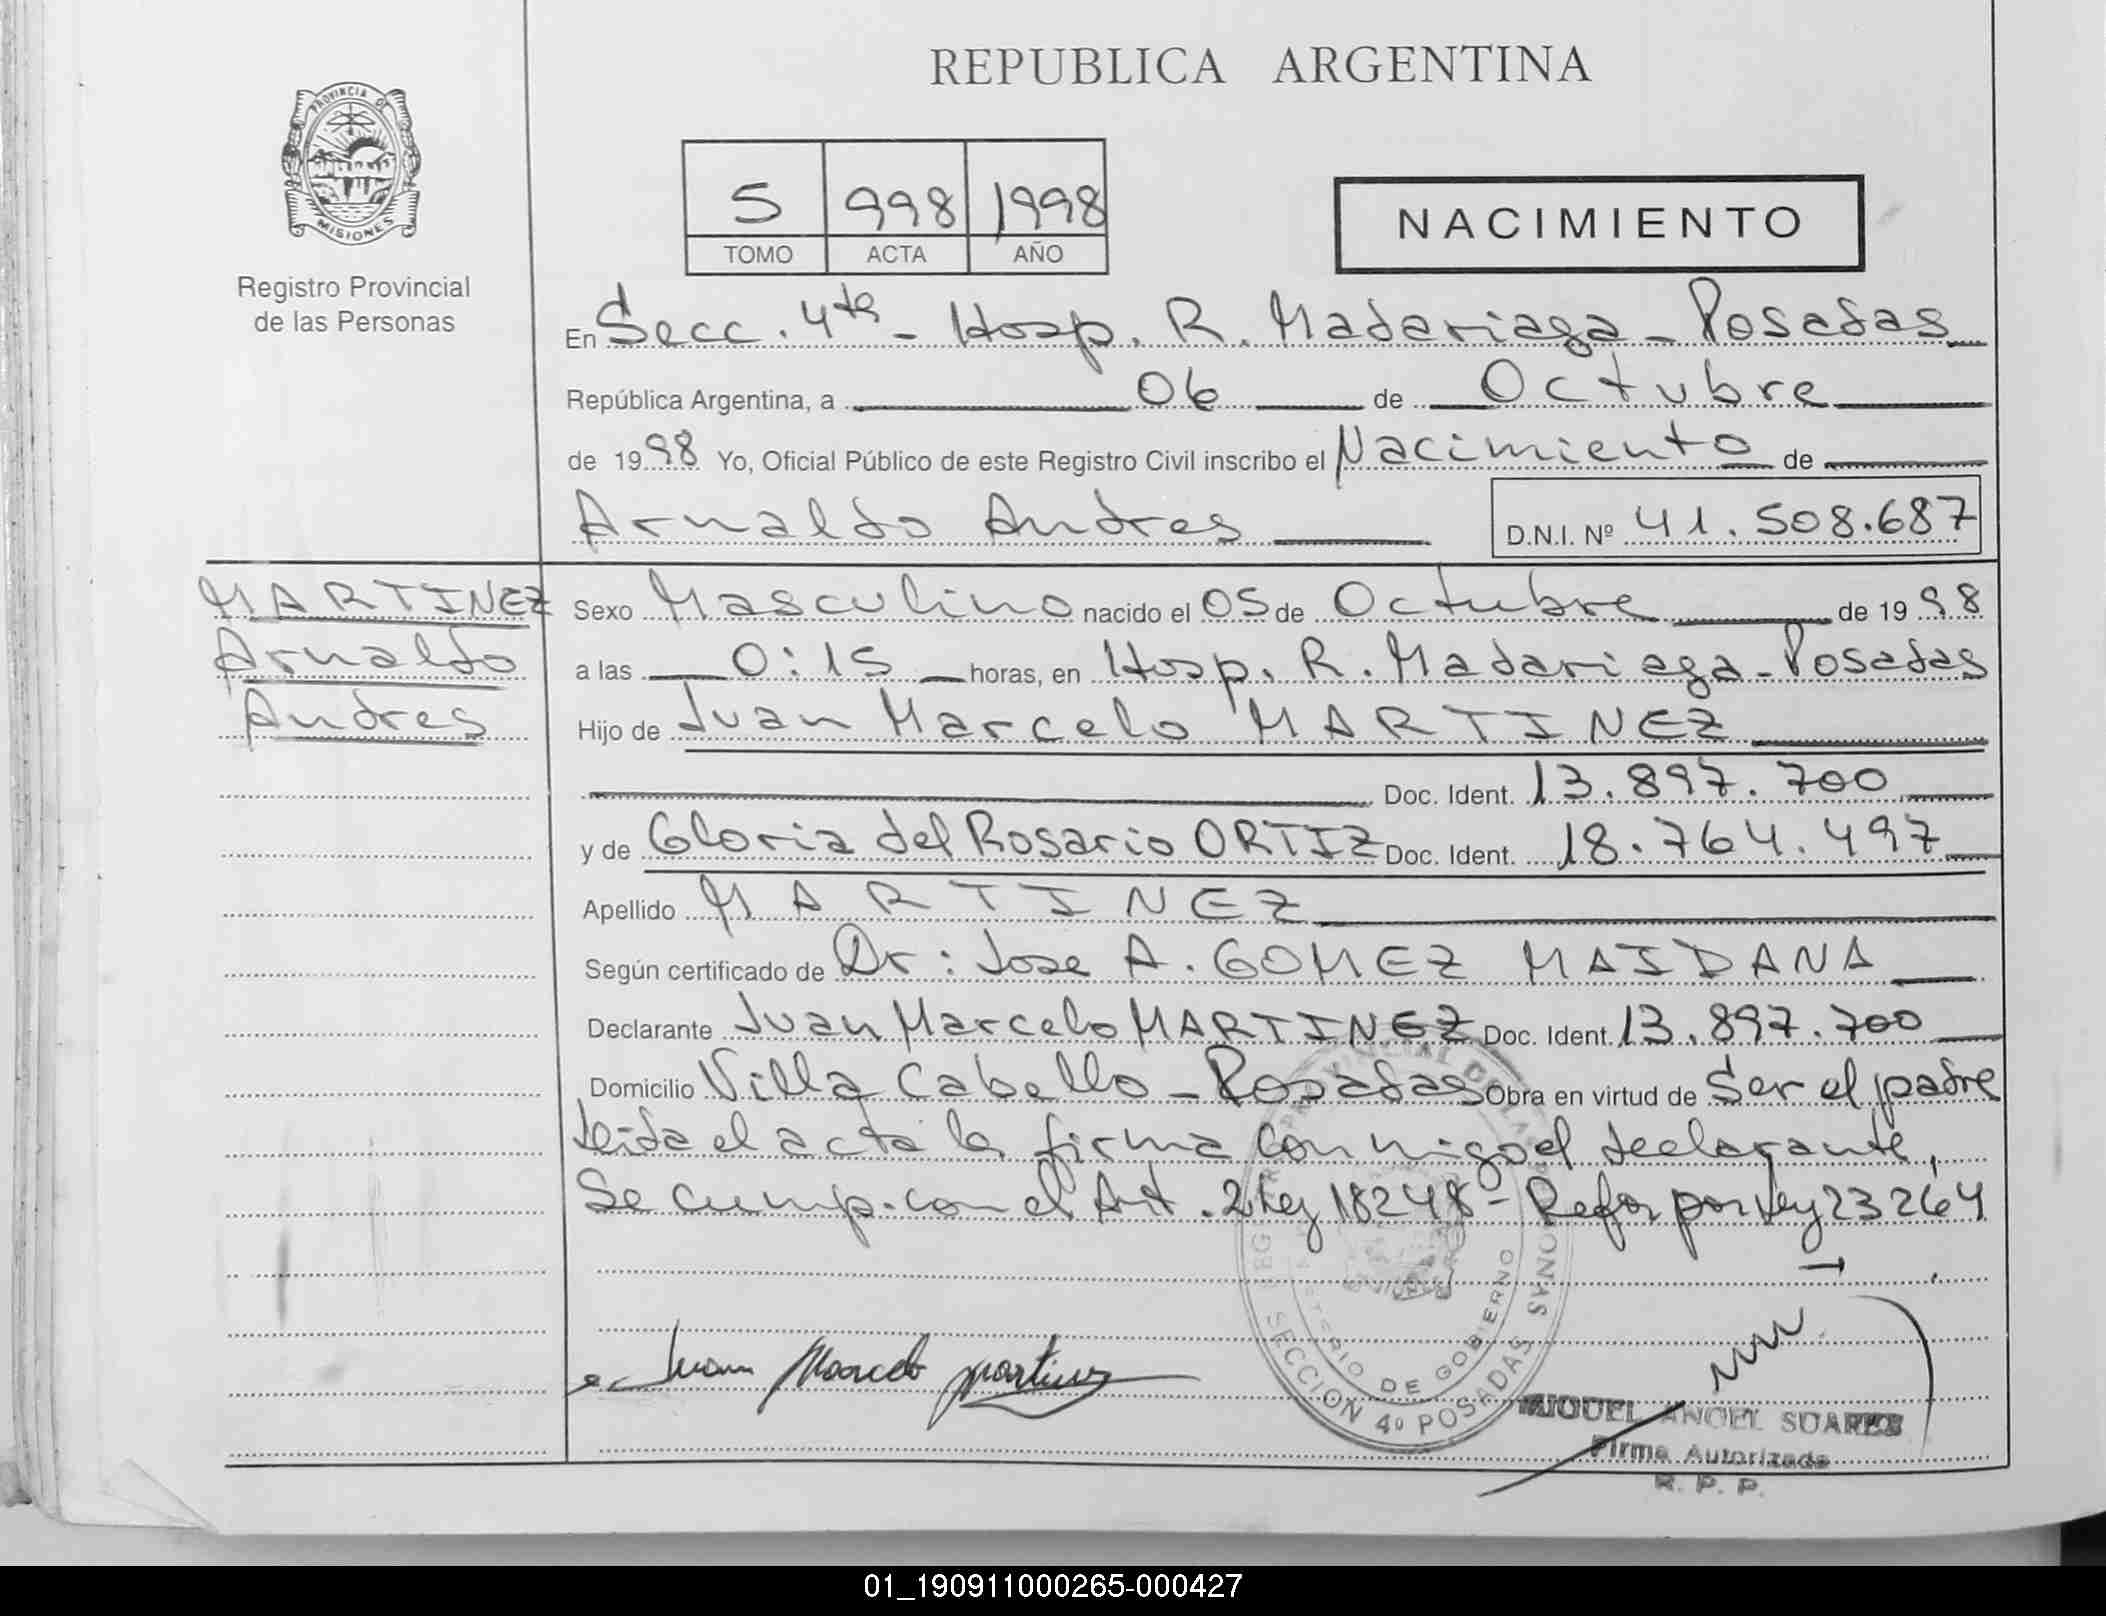 REPUBLICA ARGENTINA
PROVINCIA DE
MISIONES
Registro Provincial
de las Personas
5 998 1998
TOMO ACTA AÑO
NACIMIENTO
En Secc. 4ta - Hosp. R. Madariaga - Posadas
República Argentina, a 06 de Octubre
de 1998 Yo, Oficial Público de este Registro Civil inscribo el Nacimiento de
Arnaldo Andres D.N.I. Nº 41.508.687
MARTINEZ
Arnaldo
Andres
Sexo Masculino nacido el 05 de Octubre de 1998
a las 0:15 horas, en Hosp. R. Madariaga - Posadas
Hijo de Juan Marcelo MARTINEZ
Doc. Ident. 13.897.700
y de Gloria del Rosario ORTIZ Doc. Ident. 18.764.497
Apellido MARTINEZ
Según certificado de Dr: Jose A. GOMEZ MAIDANA
Declarante Juan Marcelo MARTINEZ Doc. Ident. 13.897.700
Domicilio Villa Cabello - Posadas Obra en virtud de Ser el padre
Leida el acta la firma conmigo el declarante,
Se cump. con el Art. 2 Ley 18248 - Refor por Ley 23264
Juan Marcelo Martinez
REGISTRO PROVINCIAL DE LAS PERSONAS
MINISTERIO DE GOBIERNO
SECCION 4º POSADAS
MIGUEL ANGEL SUAREZ
Firma Autorizada
R. P. P.
01_190911000265-000427